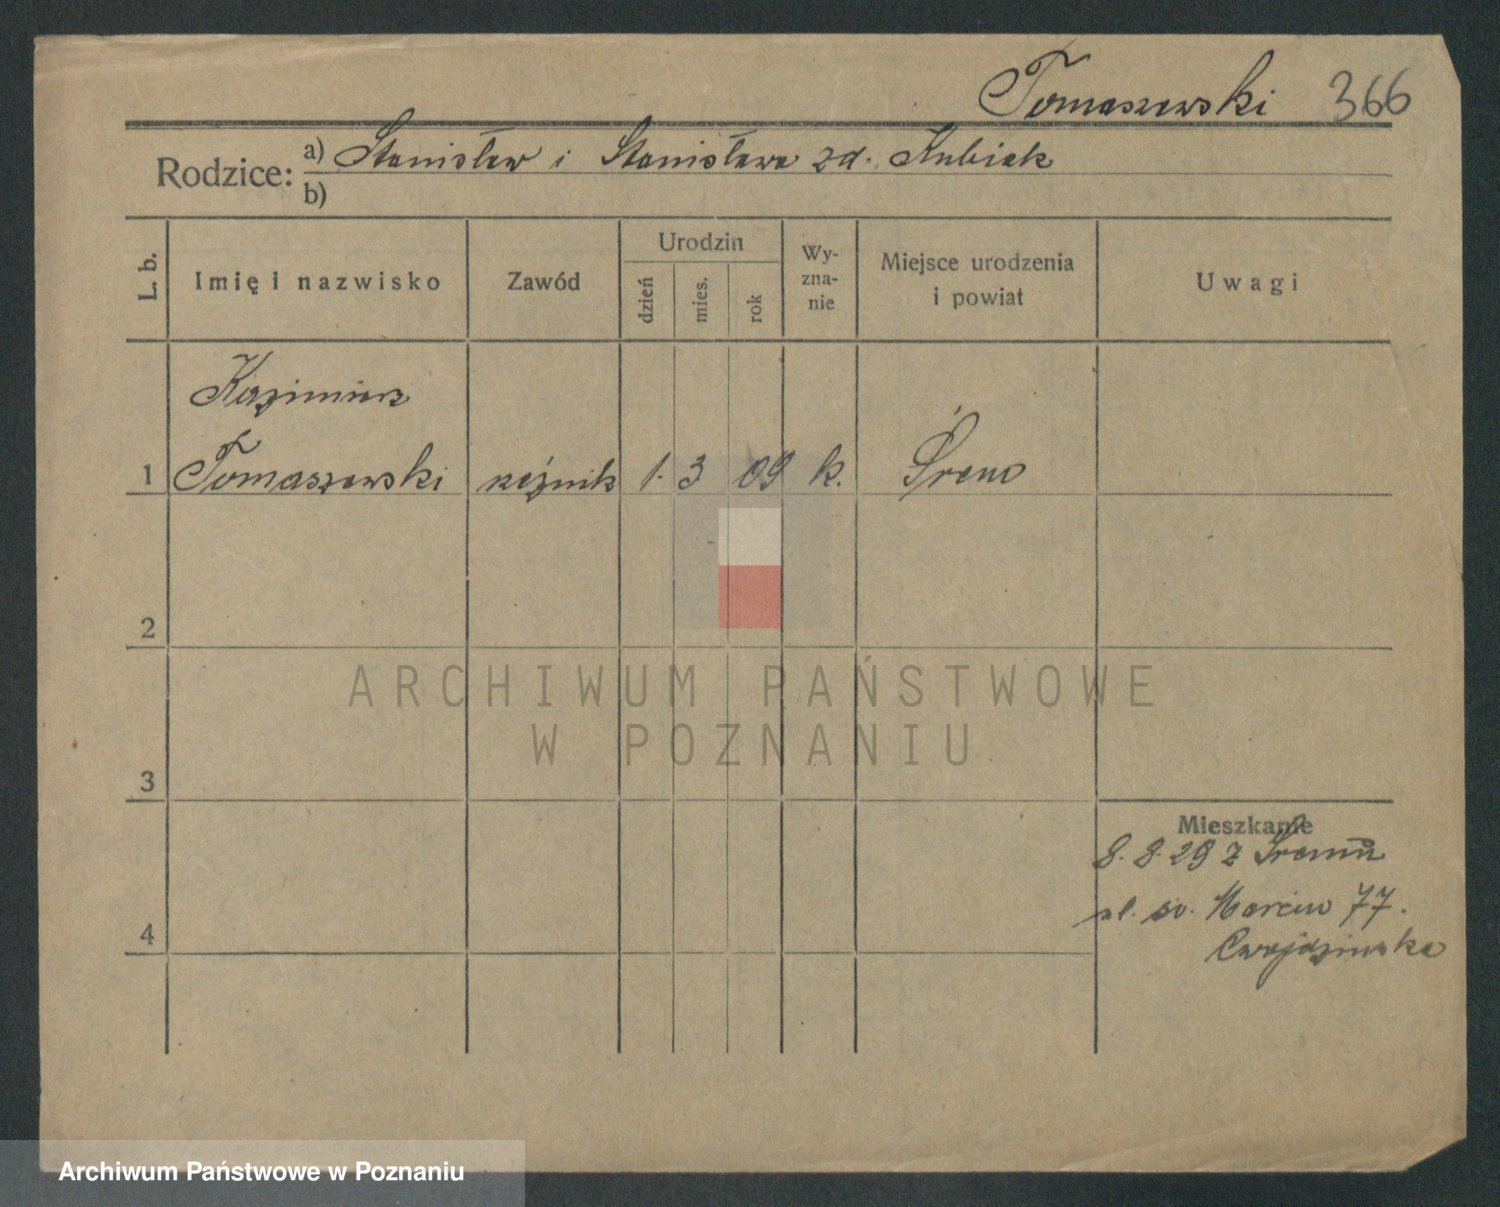 Tomaszewski 366
Rodzice: a) Stanisław i Stanisława zd. Kubiak
b)
L. b. Imię i nazwisko Zawód Urodzin dzień mies. rok Wyznanie Miejsce urodzenia i powiat Uwagi
Kazimierz
1 Tomaszewski rzeźnik 1. 3 09 k. Śrem
2
ARCHIWUM PAŃSTWOWE
W POZNANIU
3
Mieszkanie
8. 8. 29 z Śremu
św. Marcin 77.
4
Archiwum Państwowe w Poznaniu